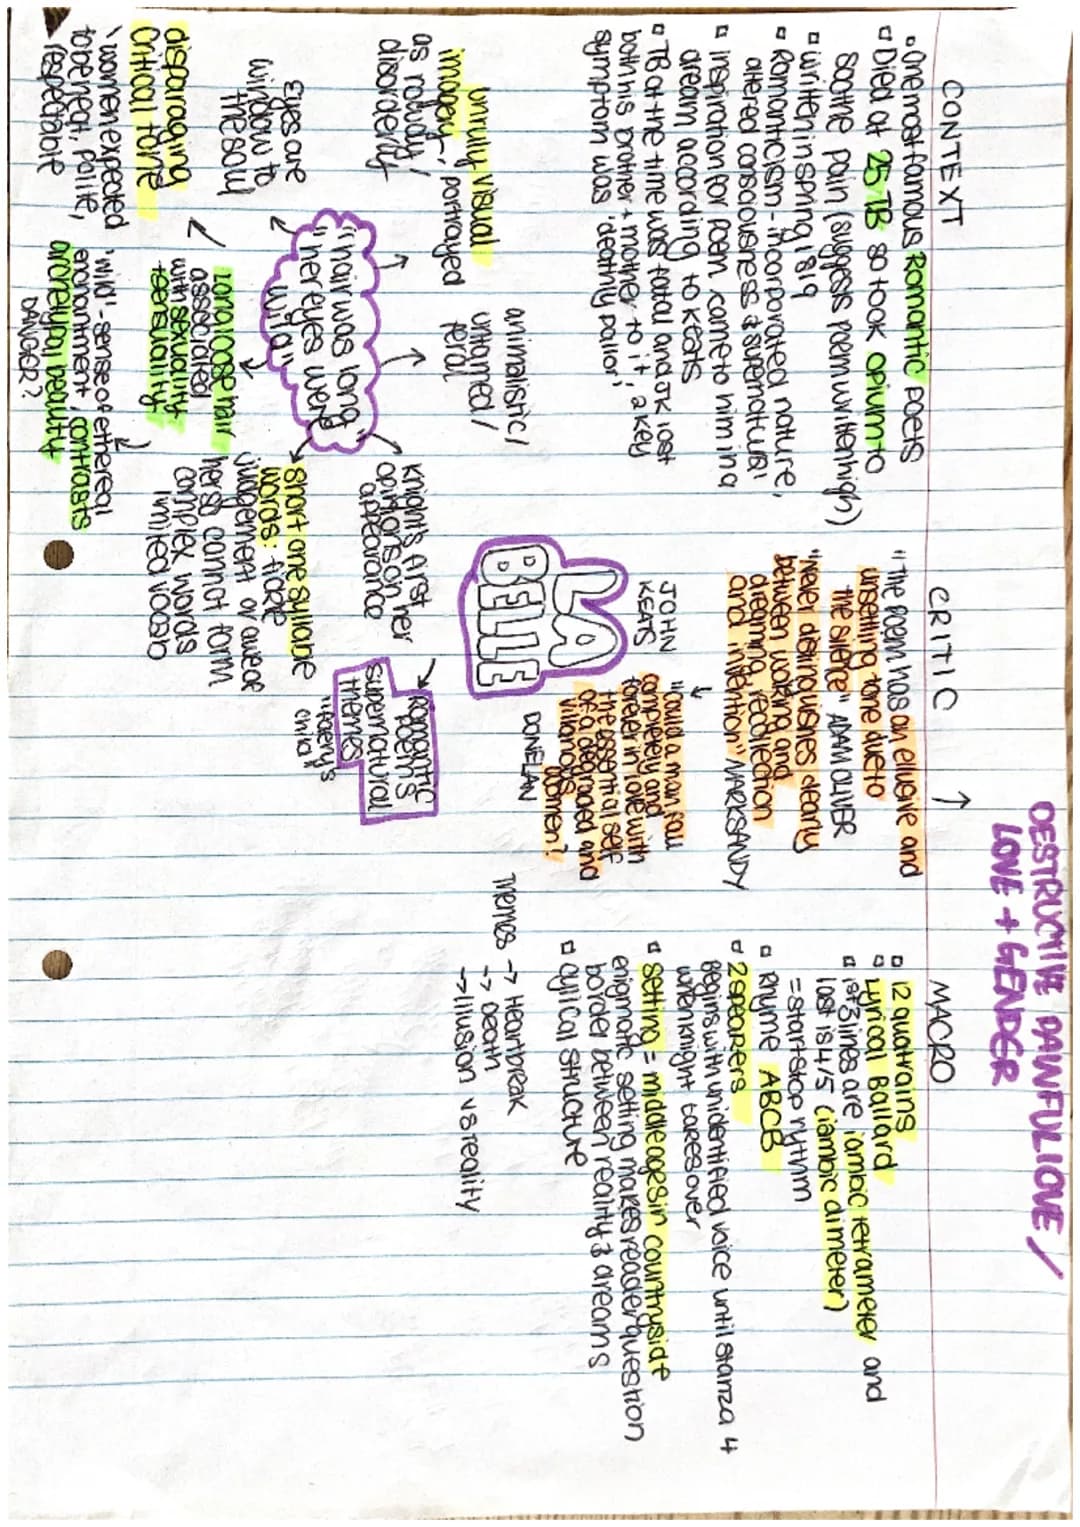 DESTRUCTIVE PAINFUL LOVE /
LOVE + GENDER
CONTEXT
One most famous Romantic Poets
Died at 25-TB so took opium to
soothe pain (suggests poem written high)
written in spring 1819
Romanticism - incorporated nature,
altered consciousness & supernatural
Inspiration for poem came to him in a
dream according to Keats
TB at the time was fatal and JK lost
both his brother + mother to it, a key
symptom was 'deathly pallor'
CRITIC
"The poem has an ellusive and
unsettling tone due to
the silence" ADAM OLIVER
"Never distinguishes clearly
between waking and
dreaming, recollection
and intention" MARK SANDY
"could a man fall
completely and
forever in love with
the essential self
of a depraved and
villainous
women?
DONELAN
MACRO
12 quatrains
Lyrical Ballard
1st 3 lines are iambic tetrameter and
last is 4/5 (iambic dimeter)
= start-stop rythm
Rhyme ABCB
2 speakers
Begins with unidentified voice until stanza 4
when knight takes over
setting = middle ages in countryside
enigmatic setting makes reader question
border between reality & dreams
cylical structure
Themes → Heartbreak
→ Death
→ Illusion vs reality
JOHN
KEATS
LA
BELLE
unruly visual
imagery, portrayed
as rowdy/
disorderly
animalistic/
untamed/
feral
Knights first
opinions on her
appearance
Romantic
poem's
supernatural
themes
"faery's
child"
"hair was long"
"her eyes were
wild"
Eyes are
window to
the soul
short one syllable
words: fickle
judgement or awe of
her so cannot form
complex words
limited vocab
long loose hair
associated
with sexuality
+sensuality
disparaging
critical tone
women expected
to be neat, polite,
respectable
'wild' - sense of ethereal
enchantment, contrasts
archetypal beauty
DANGER?